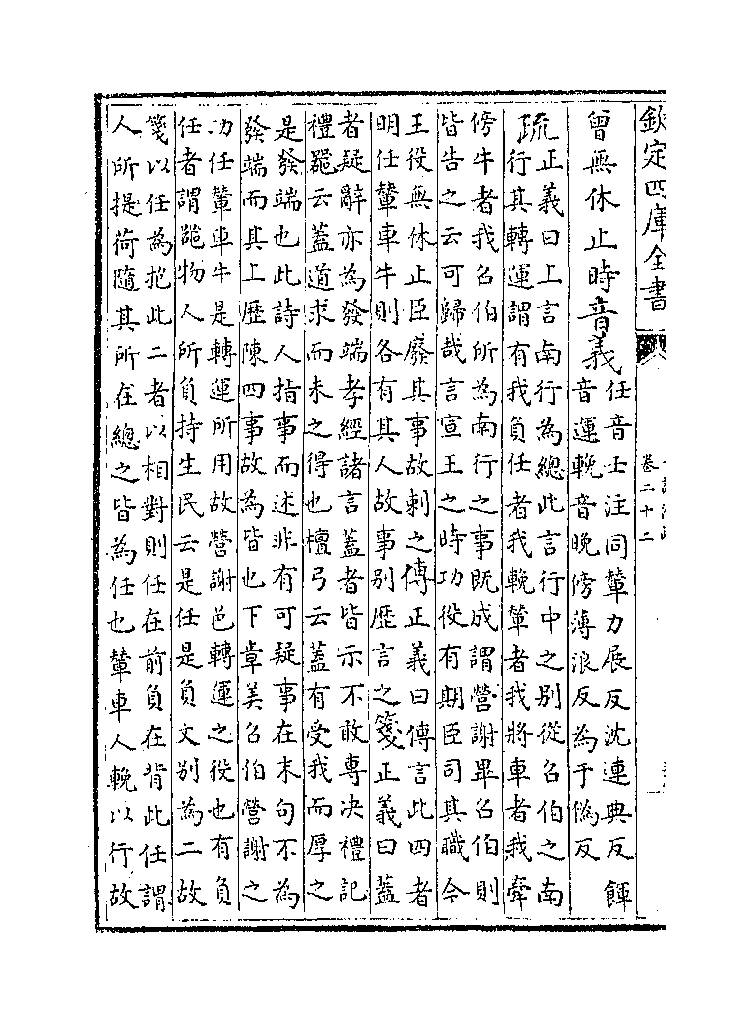 欽定四庫全書
卷二十二
曾無休止時音義
任音壬注同輦力展反沈連典反
音運輓音晚傍薄浪反為于偽反
疏
正義曰上言南行為總此言行中之別從召伯之南
行其轉運謂有我負任者我輓輦者我將車者我牽
傍牛者我召伯所為南行之事既成謂營謝畢召伯則
皆告之云可歸哉言宣王之時功役有期臣司其職今
王役無休止臣廢其事故刺之傳正義曰傳言此四者
明任輦車牛則各有其人故事別歷言之箋正義曰蓋
者疑辭亦為發端孝經諸言蓋者皆示不敢專決禮記
禮器云蓋道求而未之得也檀弓云蓋有受我而厚之
是發端也此詩人指事而述非有可疑事在末句不為
發端而其上歷陳四事故為皆也下章美召伯營謝之
功任輦車牛是轉運所用故營謝邑轉運之役也有負
任者謂器物人所負持生民云是任是負文別為二故
箋以任為抱此二者以相對則任在前負在背此任謂
人所提荷隨其所在總之皆為任也輦車人輓以行故